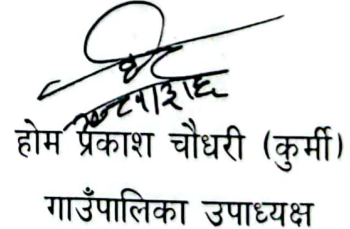 होम प्रकाश चौधरी (कुर्मी)
गाउँपालिका उपाध्यक्ष